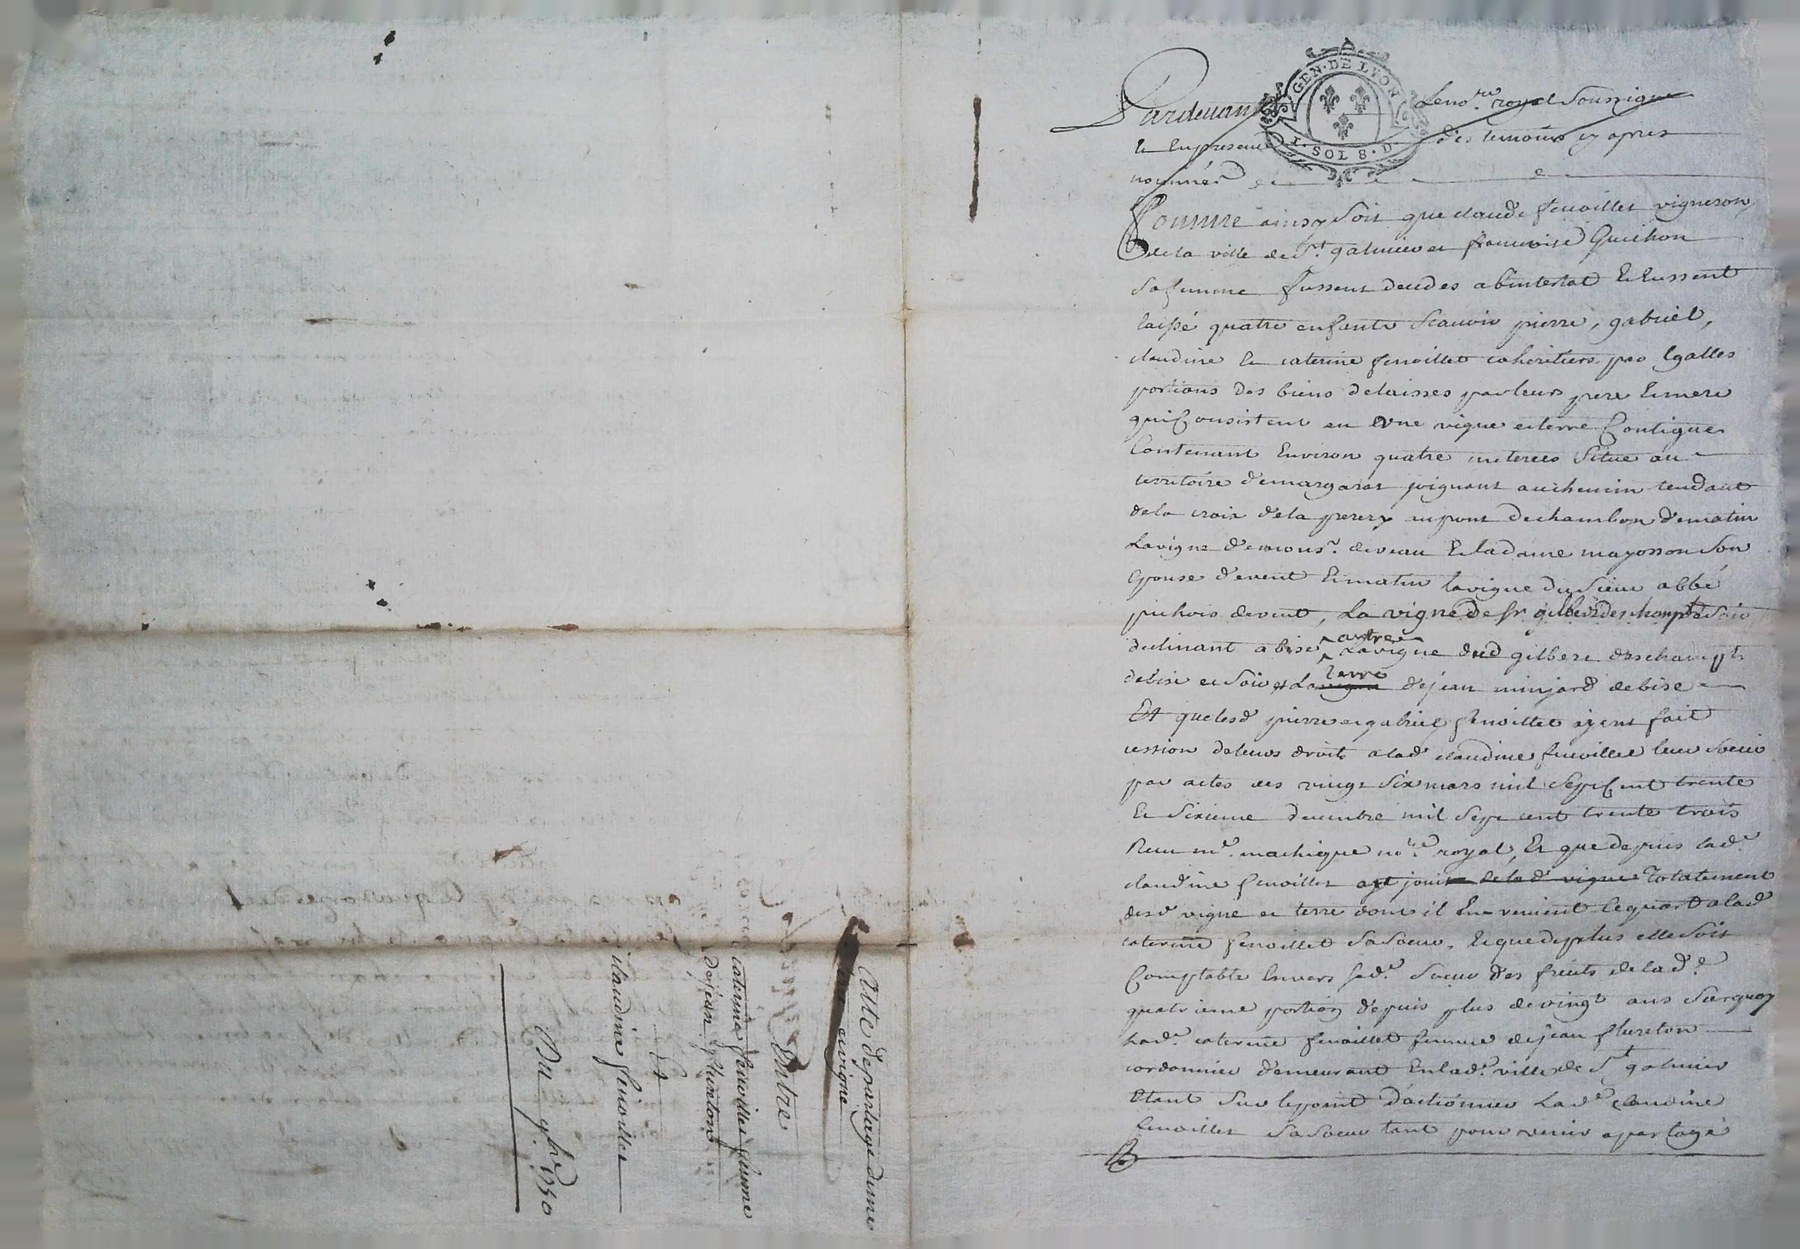 GEN. DE LYON
I. SOL 8. D.
Pardevant Le no.re royal soussigné
Et En presence des temoins cy apres
nommés
Comme ainsy soit que claude fenoillet vigneron
de la ville de St galmier et francoise Guichon
sa femme fussent decedes abintestat Et Eussent
laissé quatre enfants scauoir pierre, gabriel,
claudine Et caterine fenoillet coheritiers par Egalles
portions des biens delaisses par leurs pere Et mere
qui Consistent en Vne vigne et terre Contigue
Contenant Environ quatre meterees situe au
territoire de margaras joignant au chemin tendant
de la croix de la perery au pont de chambon de matin
La vigne de mons.r deveau Et la dame mayosson son
Epouse de vent Et matin la vigne du sieur abbé
puchois de vent, La vigne de sr gilbert deschampts soir
declinant a bise, autre La vigne dud gilbert deschampts
de bise et soir et La terre de jean minjard de bise
Et que lesd pierre et gabriel fenoillet ayent fait
cession de leurs droits a lad claudine fenoillet leur soeur
par actes des vingt six mars mil sept Cent trente
Et sixieme decembre mil sept cent trente trois
Receu m.e machique no.re royal, Et que depuis lad.e
claudine fenoillet ayt jouit de lad vigne totalement
desd vigne et terre dont il En revient le quart a lad
caterine fenoillet sa soeur, Et que de plus elle soit
Comptable Envers sad.e soeur des fruits de lad.e
quatrieme portion depuis plus de vingt ans surquoy
Lad.e caterine fenoillet femme de jean fleureton
cordonnier demeurant En lad.e ville de St galmier
Etant sur le point d'actionner Lad.e claudine
fenoillet sa soeur tant pour venir a partage
Acte de partage d'une
vigne
Entre
caterine fenoillet femme
de jean fleureton
Et
claudine fenoillet
Du 9bre 1750